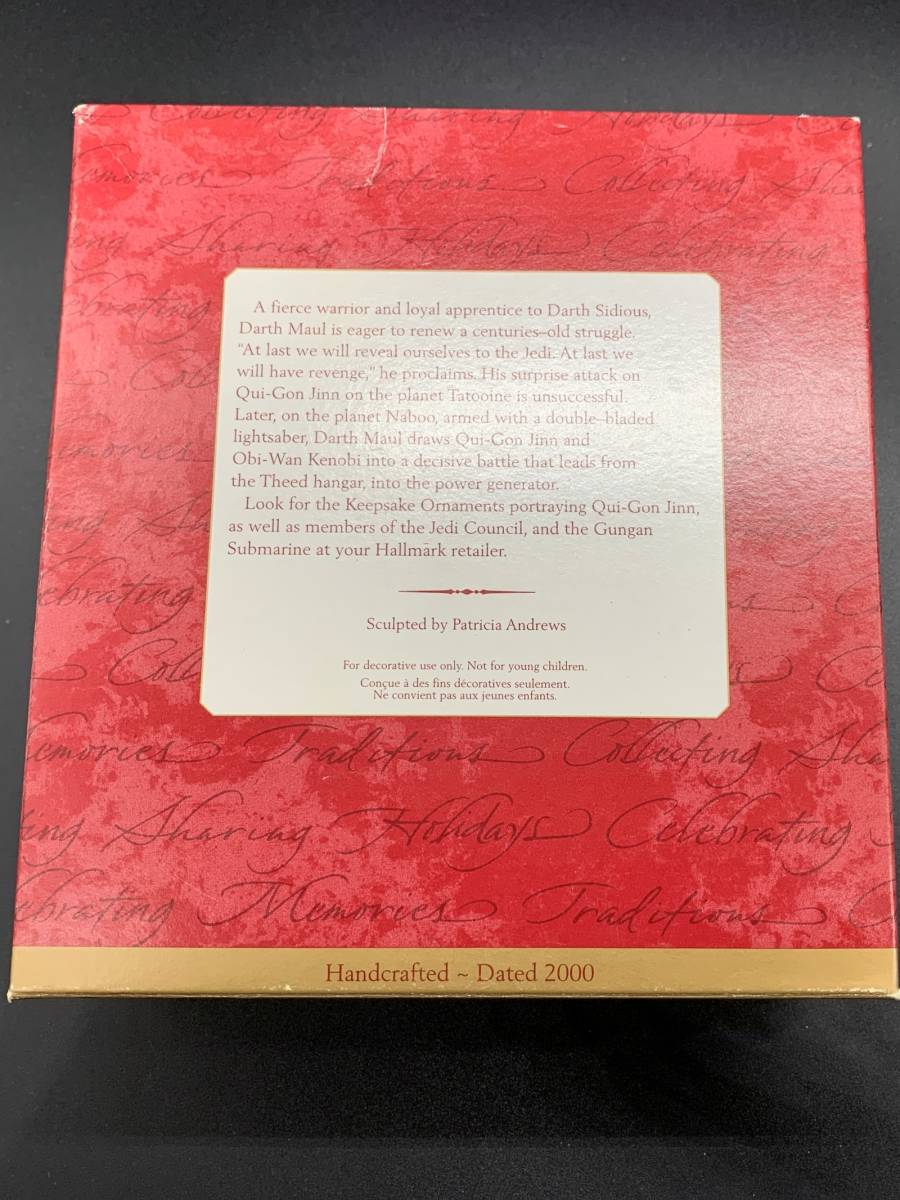 Collecting Sharing Holidays
Memories Traditions Collecting Sha
ing Sharing Holidays Celebrating
ebrating
A fierce warrior and loyal apprentice to Darth Sidious,
Darth Maul is eager to renew a centuries–old struggle.
“At last we will reveal ourselves to the Jedi. At last we
will have revenge,” he proclaims. His surprise attack on
Qui-Gon Jinn on the planet Tatooine is unsuccessful.
Later, on the planet Naboo, armed with a double–bladed
lightsaber, Darth Maul draws Qui-Gon Jinn and
Obi-Wan Kenobi into a decisive battle that leads from
the Theed hangar, into the power generator.
Look for the Keepsake Ornaments portraying Qui-Gon Jinn,
as well as members of the Jedi Council, and the Gungan
Submarine at your Hallmark retailer.
Sculpted by Patricia Andrews
For decorative use only. Not for young children.
Conçue à des fins décoratives seulement.
Ne convient pas aux jeunes enfants.
emories Traditions Collecting Sha
ing Sharing Holidays Celebrating
ebrating Memories Traditions C
Handcrafted ~ Dated 2000